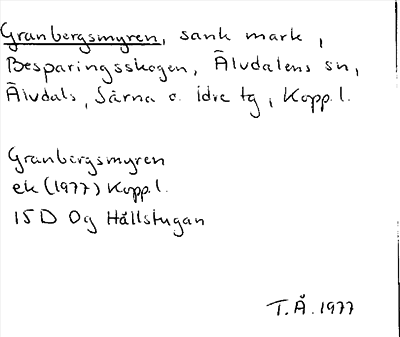 Granbergsmyren, sank mark,
Besparingsskogen, Älvdalens sn,
Älvdals, Särna o. Idre tg, Kopp.l.
Granbergsmyren
ek (1977) Kopp.l.
15D 0g Hållstugan
T.Å. 1977